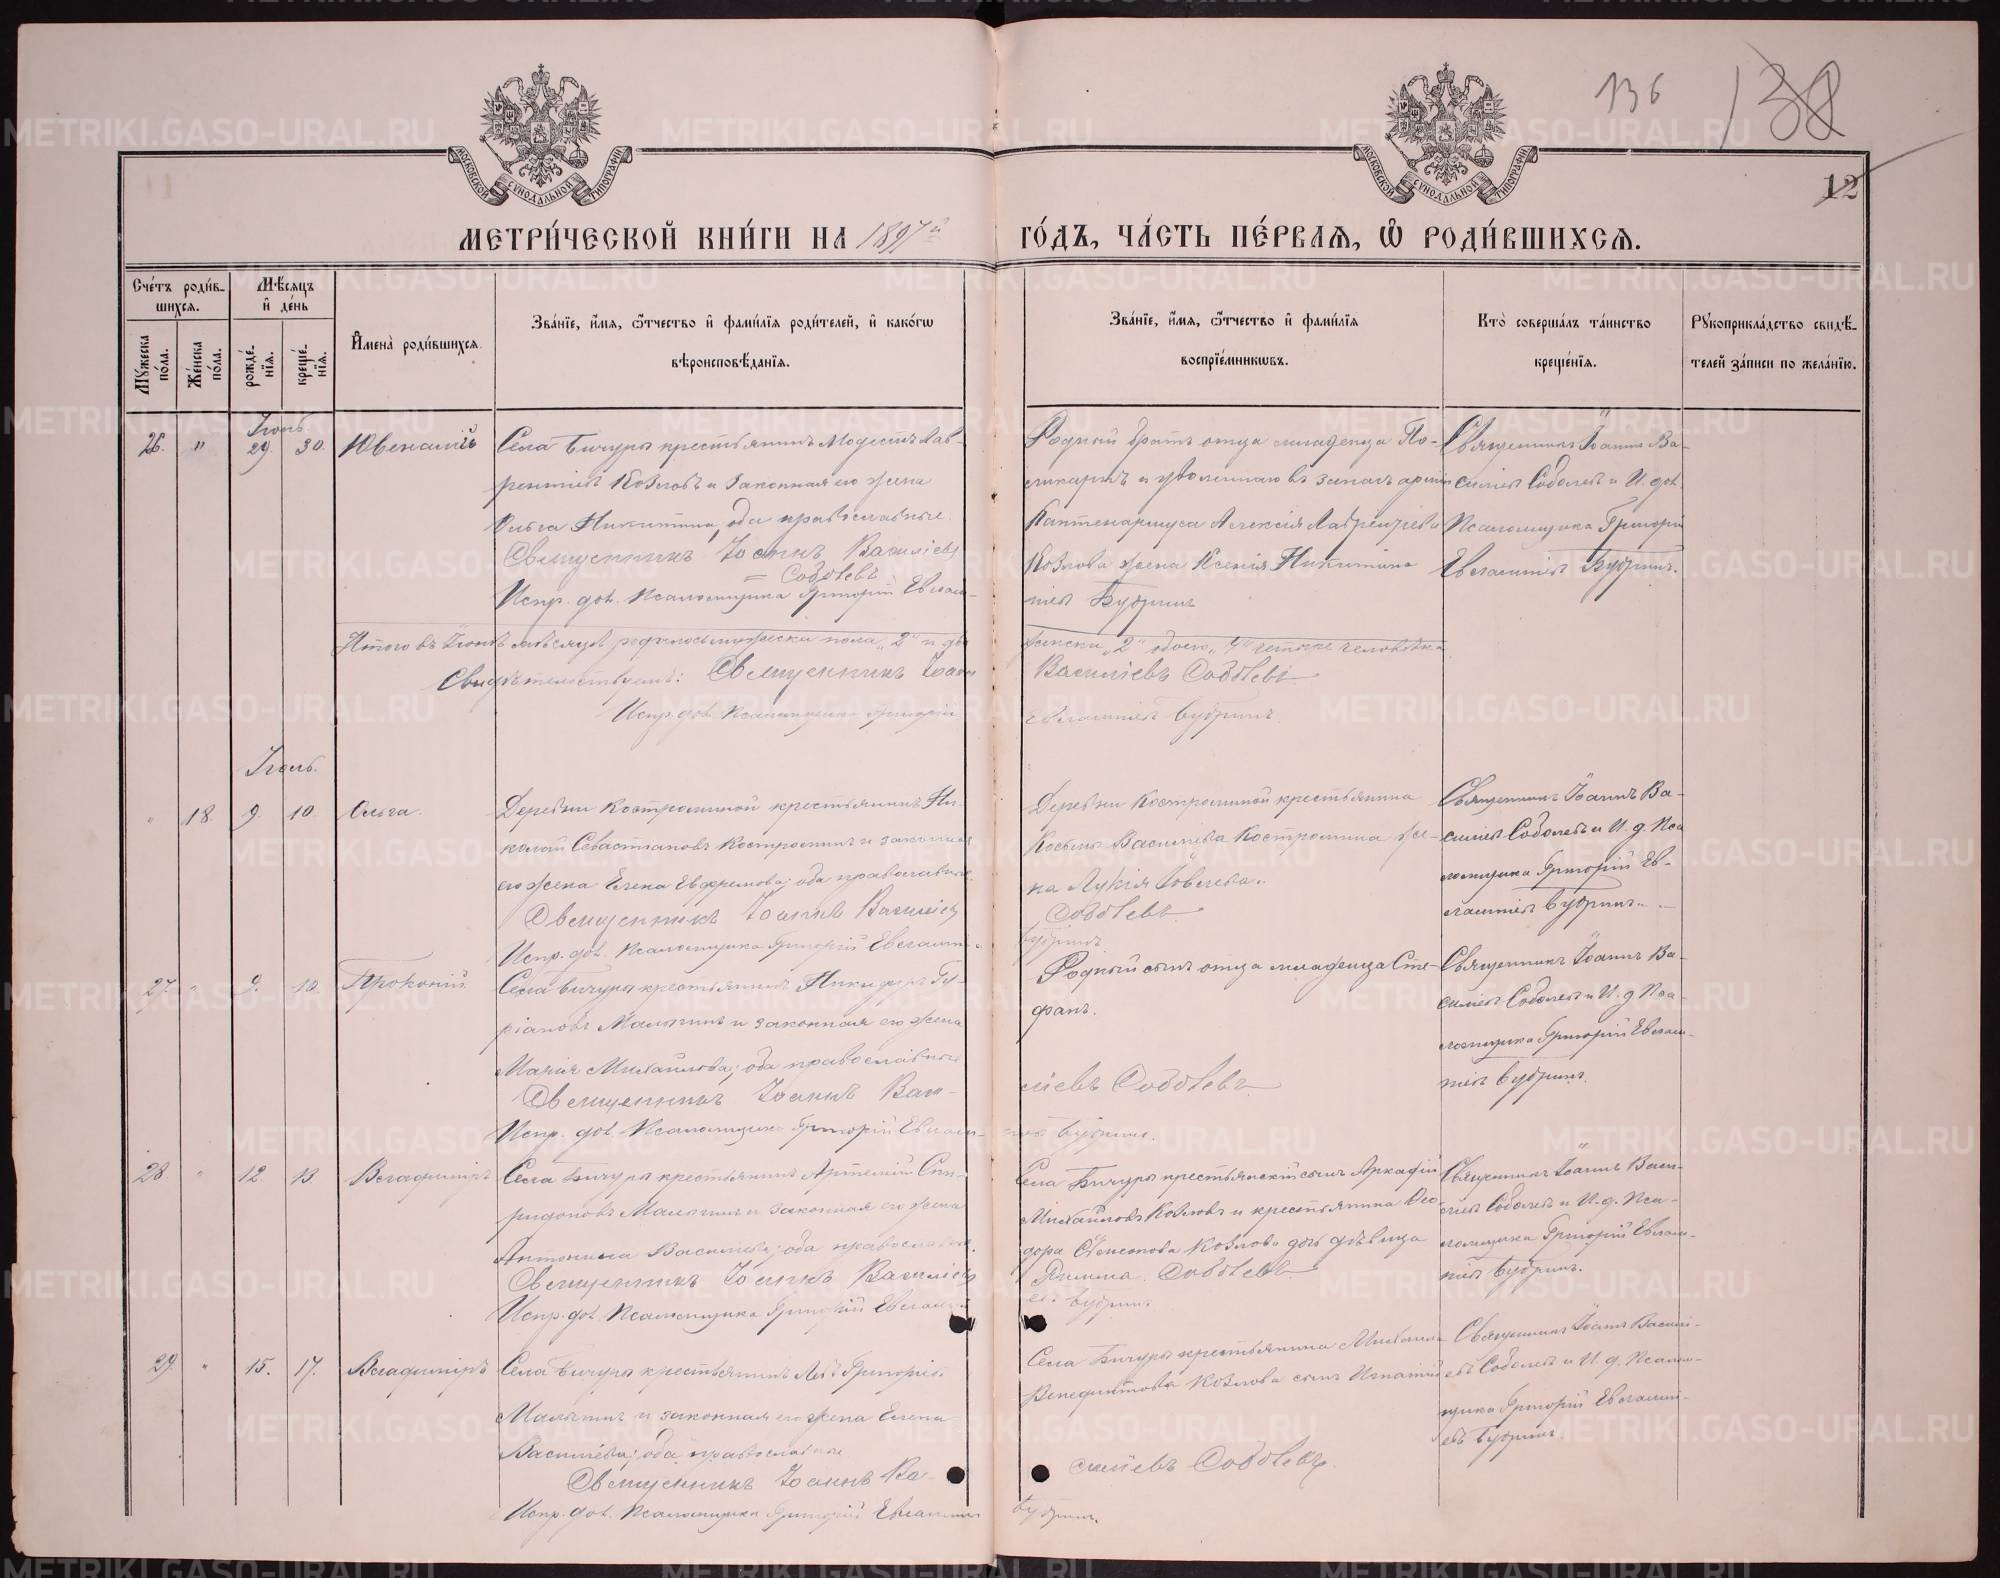 136
138
12
МОСКОВСКОЙ СУНОДАЛЬНОЙ ТИПОГРАФИИ
МОСКОВСКОЙ СУНОДАЛЬНОЙ ТИПОГРАФИИ
МЕТРИ́ЧЕСКОЙ КНИ́ГИ НА 1897й ГО́ДЪ, ЧА́СТЬ ПЕ́РВАЯ, Ѡ РОДИ́ВШИХСЯ.
Сче́тъ роди́в-
шихся.
Мѣ́сяцъ
и҆ де́нь
Мꙋ́жеска по́ла.
Же́нска по́ла.
рожде́-
нїя.
креще́-
нїя.
И҆мена̀ роди́вшихся.
Зва́нїе, и҆́мя, ѻ҆́тчество и҆ фами́лїя роди́телей, и҆ како́гѡ
вѣроисповѣ́данїя.
Зва́нїе, и҆́мя, ѻ҆́тчество и҆ фами́лїя
воспрїе́мникѡвъ.
Кто̀ соверша́лъ та́инство
креще́нїя.
Рꙋкоприкла́дство свидѣ́-
телей за́писи по жела́нїю.
Іюнь
26. " 29. 30. Ювеналій
Села Бичуры крестьянинъ Модестъ Лав-
рентіевъ Козловъ и законная его жена
Ольга Никитина, оба православные
Священникъ Іоаннъ Василіевъ
= Соболевъ
Испр. дол. Псаломщика Григорій Евлам-
Родный братъ отца младенца По-
ликарпъ и уволеннаго въ запасъ арміи
Каптенармуса Алексія Лаврентіева
Козлова жена Ксенія Никитина
піевъ Бубринъ
Священникъ Іоаннъ Ва-
силіевъ Соболевъ и И. дол.
Псаломщика Григорій
Евлампіевъ Бубринъ.
Итого въ Іюнѣ мѣсяцѣ родилось мужеска пола "2" и два
женска "2" обоего "4" четыре человѣка
Свидѣтельствуемъ: Священникъ Іоанн
Василіевъ Соболевъ
Испр. дол. Псаломщика Григорій
Евлампіевъ Бубринъ
Іюль.
" 18. 9. 10. Ольга.
Деревни Костроминой крестьянинъ Ни-
колай Севастіановъ Костроминъ и законная
его жена Елена Ефремова; оба православные.
Священникъ Іоаннъ Василіевъ
Испр. дол. Псаломщика Григорій Евлампі-
Деревни Костроминой крестьянина
Косьмы Василіева Костромина же-
на Лукія Іовлева.
Соболевъ
Бубринъ
Священникъ Іоаннъ Ва-
силіевъ Соболевъ и И. д. Пса
ломщика Григорій Ев-
лампіевъ Бубринъ.
27. " 9. 10. Прокопій.
Села Бичуры крестьянинъ Никифоръ Гу-
ріановъ Малыгинъ и законная его жена
Марія Михайлова; оба православные
Священникъ Іоаннъ Васи-
Испр. дол. Псаломщика Григорій Евлам-
Родный сынъ отца младенца Сте-
фанъ.
ліевъ Соболевъ
піевъ Бубринъ.
Священникъ Іоаннъ Ва-
силіевъ Соболевъ и И. д Пса-
ломщика Григорій Евлам-
піевъ Бубринъ.
28. " 12. 13. Владиміръ
Села Бичуры крестьянинъ Артемій Спи-
ридоновъ Малыгинъ и законная его жена
Антонина Василіева; оба православные.
Священникъ Іоаннъ Василіевъ
Испр. дол. Псаломщика Григорій Евлампій
Села Бичуры крестьянскій сынъ Аркадій
Михайловъ Козловъ и крестьянина Ѳео-
дора Симеонова Козлова дочь дѣвица
Римма. Соболевъ
Бубринъ
Священникъ Іоаннъ Васи-
ліевъ Соболевъ и И. д. Пса-
ломщика Григорій Евлам-
піевъ Бубринъ.
29. " 15. 17. Владиміръ
Села Бичуры крестьянинъ Левъ Григоріевъ
Малыгинъ и законная его жена Елена
Василіева; оба православные
Священникъ Іоаннъ Ва-
Испр. дол. Псаломщика Григорій Евлампіевъ
Села Бичуры крестьянина Михаила
Венедиктова Козлова сынъ Игнатій
силіевъ Соболевъ.
Бубринъ.
Священникъ Іоаннъ Василі-
евъ Соболевъ и И. д. Псалом-
щика Григорій Евлампі-
евъ Бубринъ.
METRIKI.GASO-URAL.RU